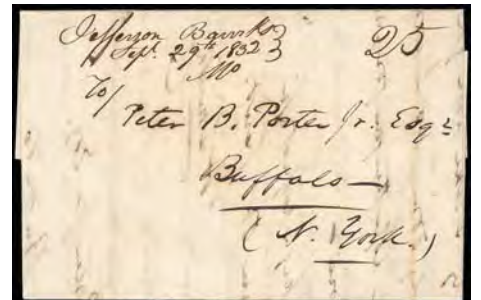 Jefferson Barrks }
Sept. 29th 1832 }
Mo
25
To/
Peter B. Porter Jr. Esqr
Buffalo —
(N. York.)